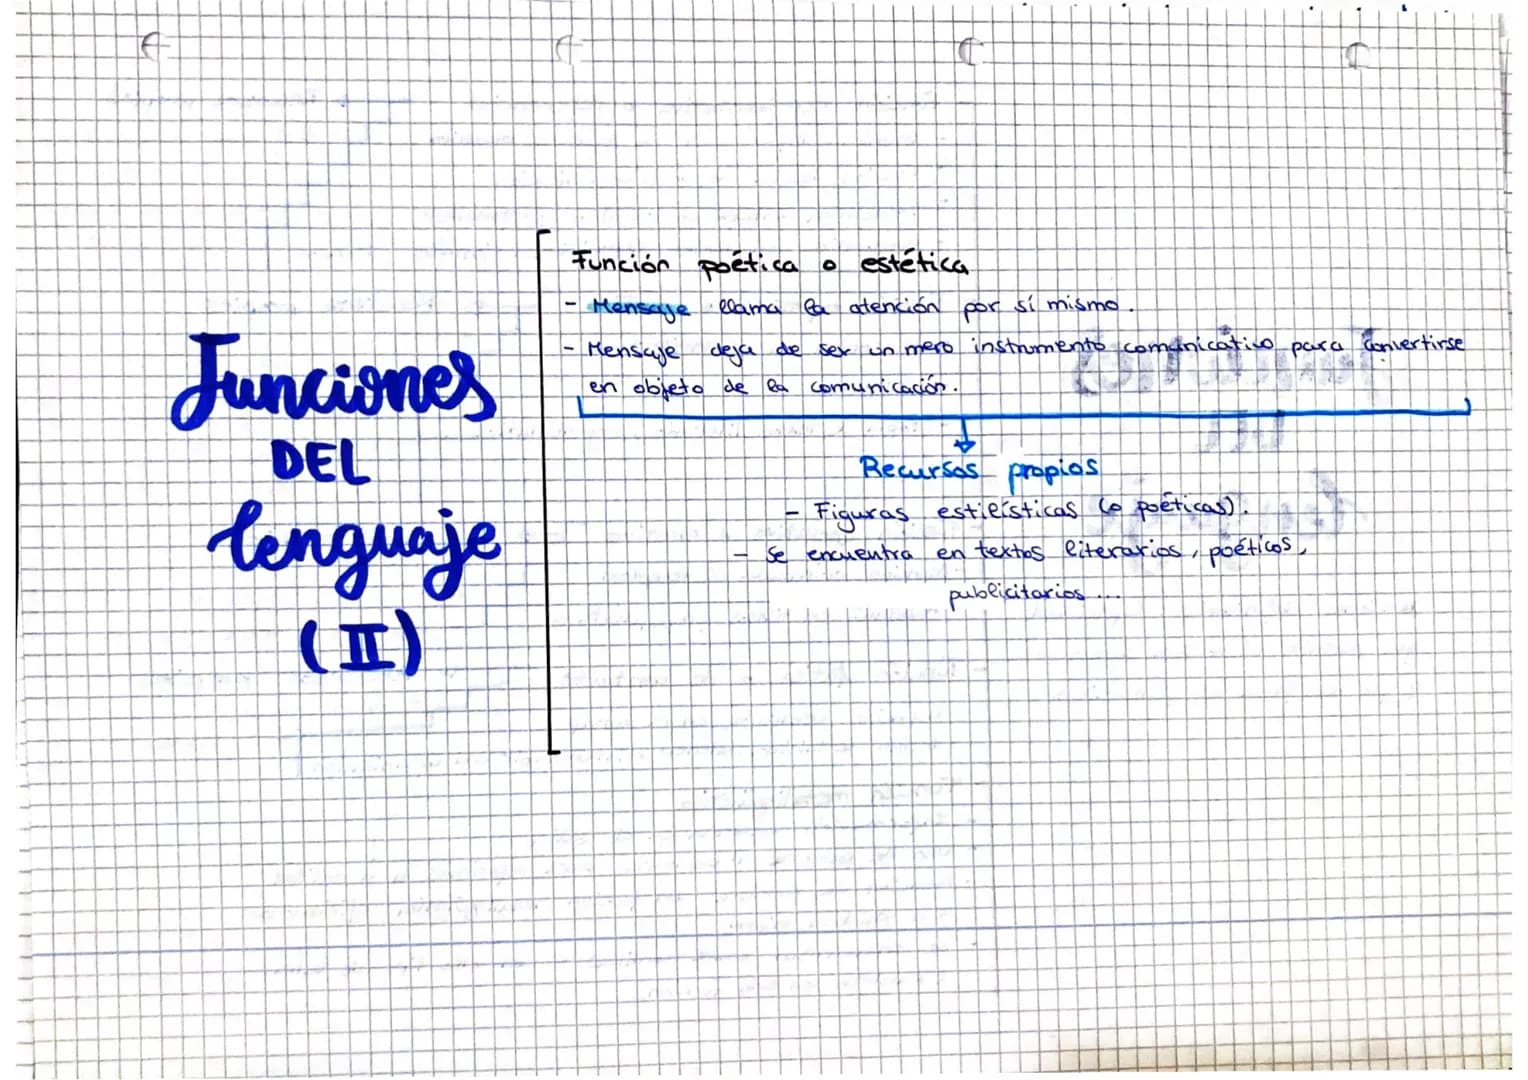 Funciones
DEL
lenguaje
(II)
Función poética o estética
- Mensaje llama la atención por sí mismo.
- Mensaje deja de ser un mero instrumento comunicativo para convertirse
en objeto de la comunicación.
Recursos propios
- Figuras estilísticas (o poéticas).
- Se encuentra en textos literarios, poéticos,
publicitarios ...